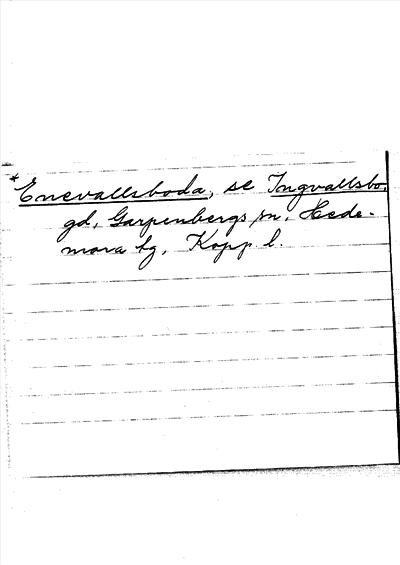 *Enevallsboda, se Ingvallsbo,
gd, Garpenbergs sn, Hede-
mora tg, Kopp l.